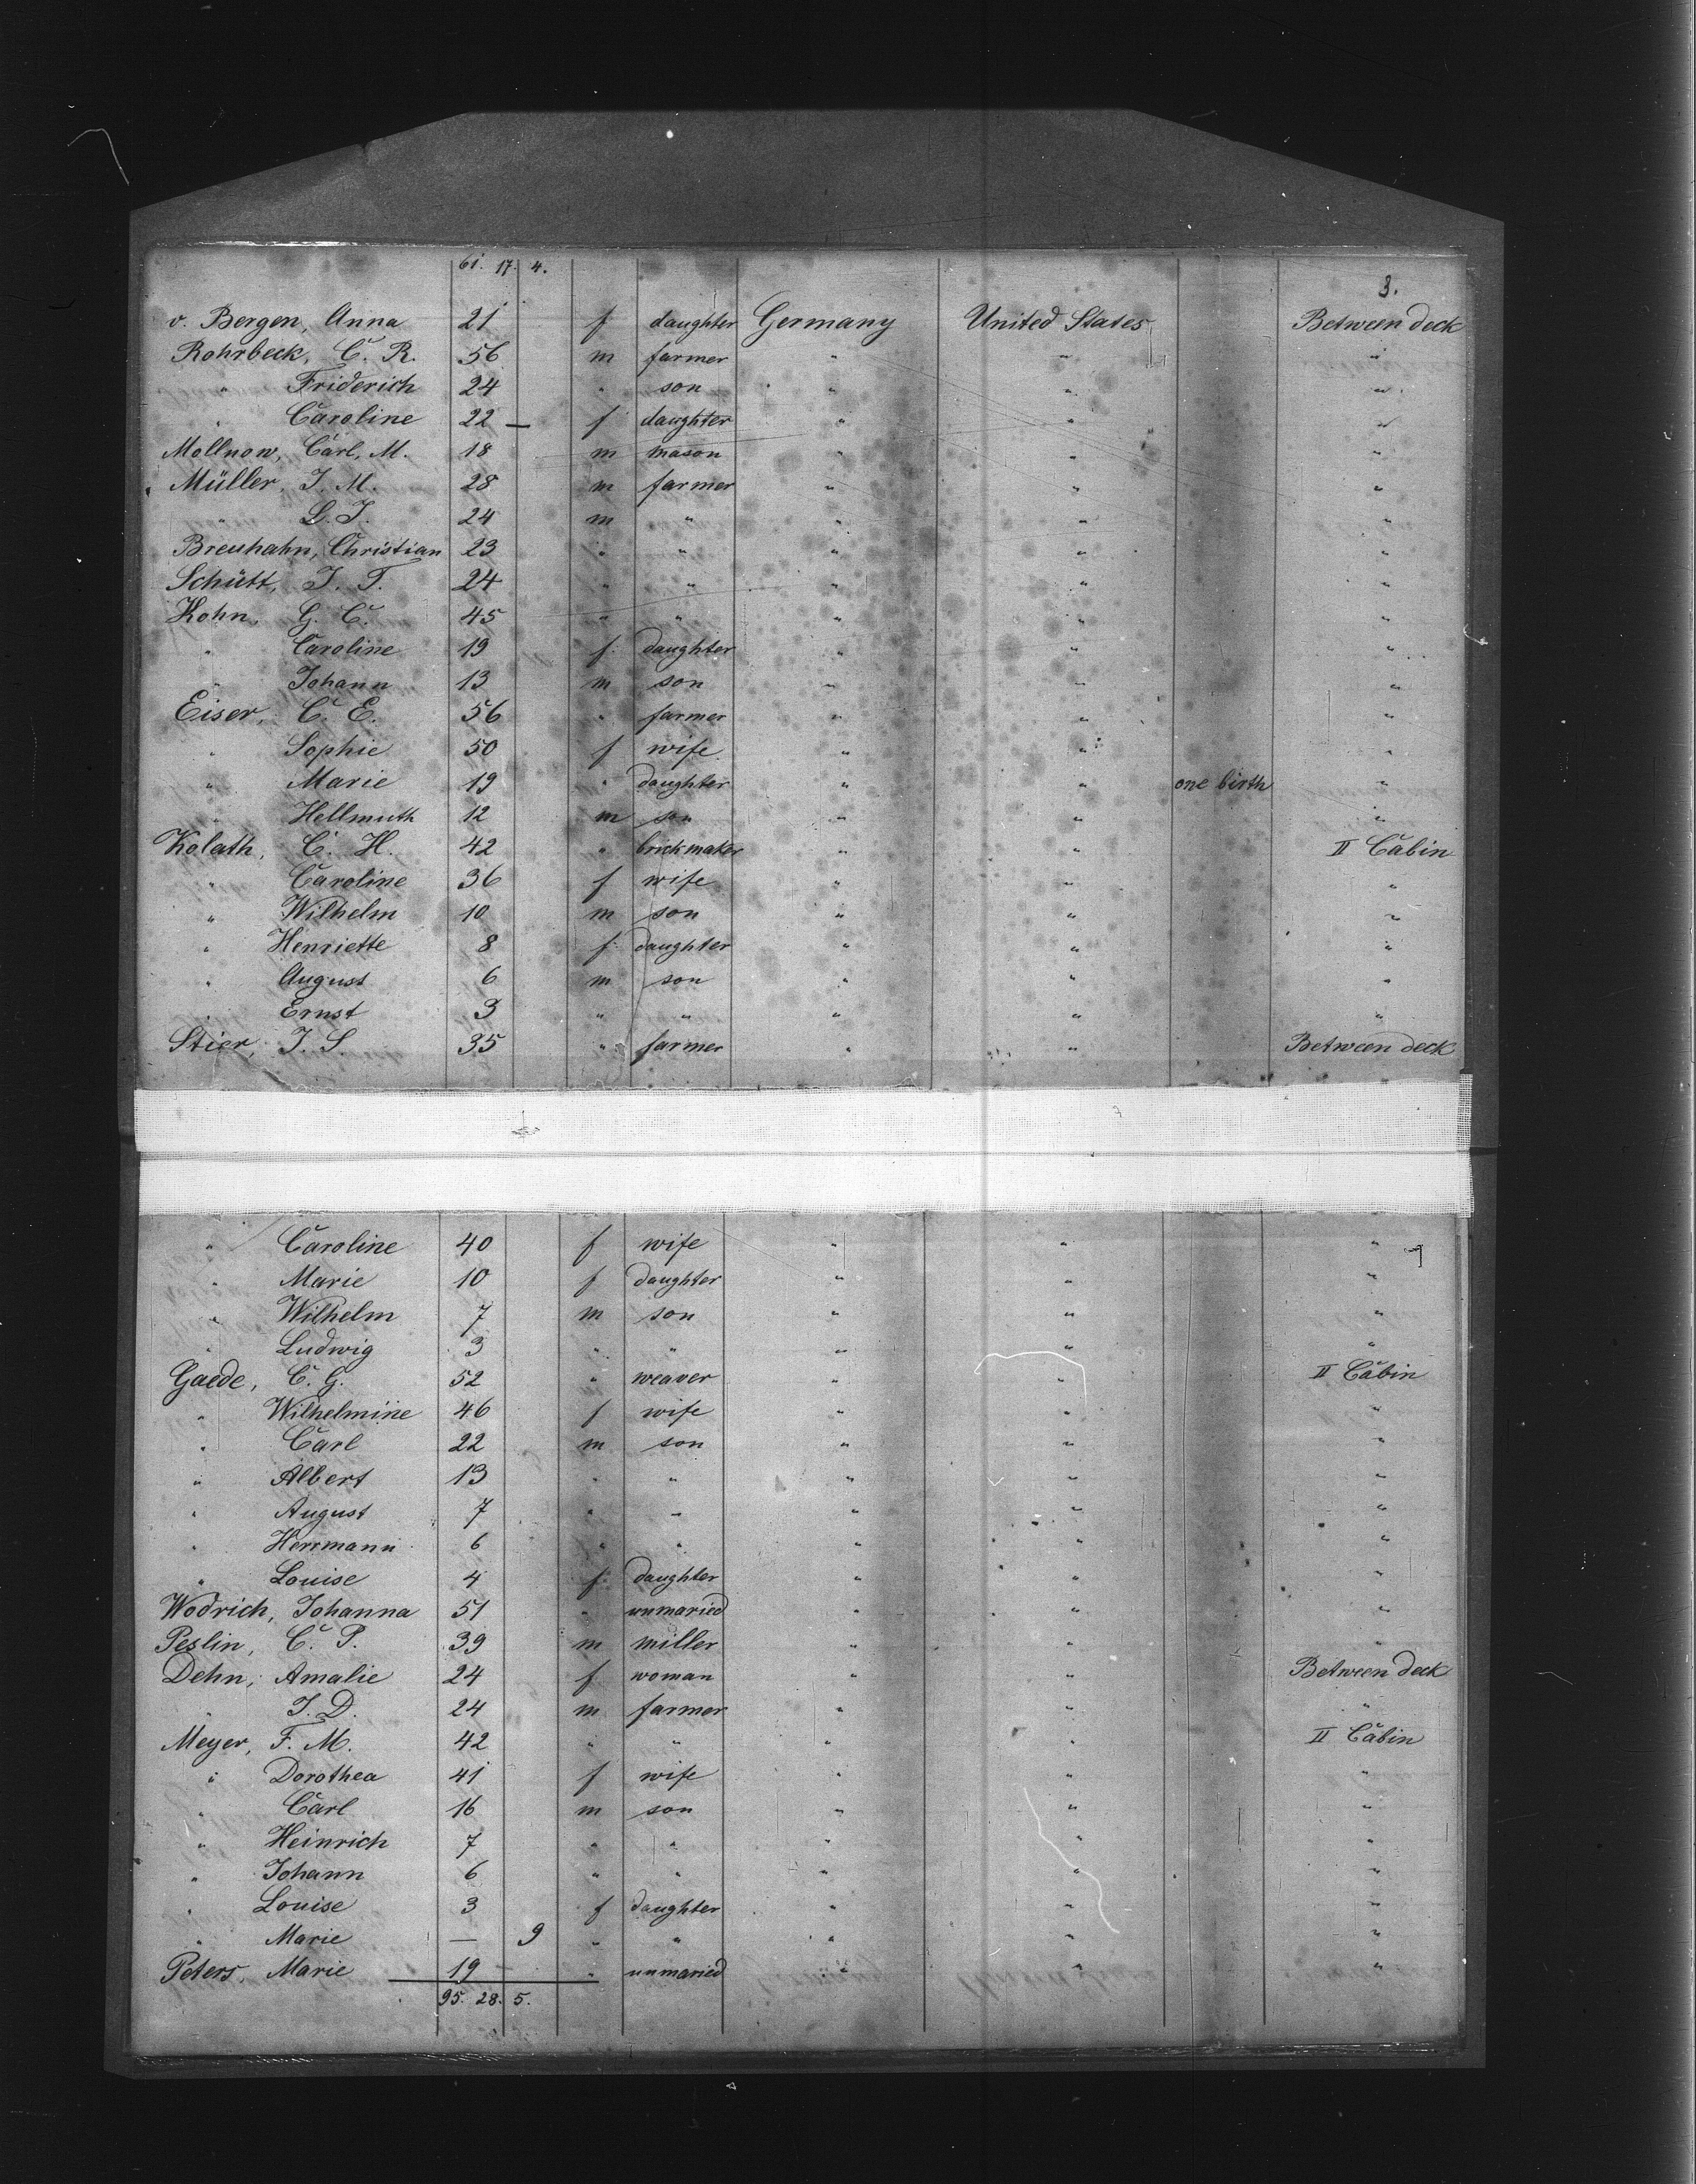 61. 17. 4.
3.
v. Bergen, Anna 21 f daughter Germany United States Between deck
Rohrbeck, C. R. 56 m farmer " " "
" Friderich 24 " son " " "
" Caroline 22 — f daughter " " "
Mollnow, Carl, M. 18 m mason " " "
Müller, J. M. 28 m farmer " " "
" L. J. 24 m " " " "
Breuhahn, Christian 23 " " " " "
Schütt, J. T. 24 " " " " "
Kohn, G. C. 45 " " " " "
" Caroline 19 f. daughter " " "
" Johann 13 m son " " "
Eiser, C. E. 56 " farmer " " "
" Sophie 50 f wife " " "
" Marie 19 " daughter " " one birth "
" Hellmuth 12 m son " " "
Kolath, C. H. 42 " brickmaker " " II Cabin
" Caroline 36 f wife " " "
" Wilhelm 10 m son " " "
" Henriette 8 f. daughter " " "
" August 6 m son " " "
" Ernst 3 " " " " "
Stier, J. S. 35 " farmer " " Between deck
" Caroline 40 f wife " " "
" Marie 10 f daughter " " "
" Wilhelm 7 m son " " "
" Ludwig 3 " " " " "
Gaede, C. G. 52 " weaver " " II Cabin
" Wilhelmine 46 f wife " " "
" Carl 22 m son " " "
" Albert 13 " " " " "
" August 7 " " " " "
" Herrmann 6 " " " " "
" Louise 4 f. daughter " " "
Wodrich, Johanna 51 " unmaried " " "
Peslin, C. P. 39 m miller " " "
Dehn, Amalie 24 f woman " " Between deck
" J. D. 24 m farmer " " "
Meyer, F. M. 42 " " " " II Cabin
" Dorothea 41 f wife " " "
" Carl 16 m son " " "
" Heinrich 7 " " " " "
" Johann 6 " " " " "
" Louise 3 f daughter " " "
" Marie — 9 " " " " "
Peters, Marie 19 " unmaried " " "
95. 28. 5.